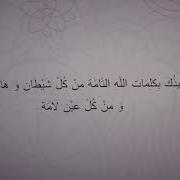 يذُك بِكلمات الله التَّامَة مِنْ كُلّ شَيْطان وَ ها
وَ مِنْ كُلّ عَيْن لامَة